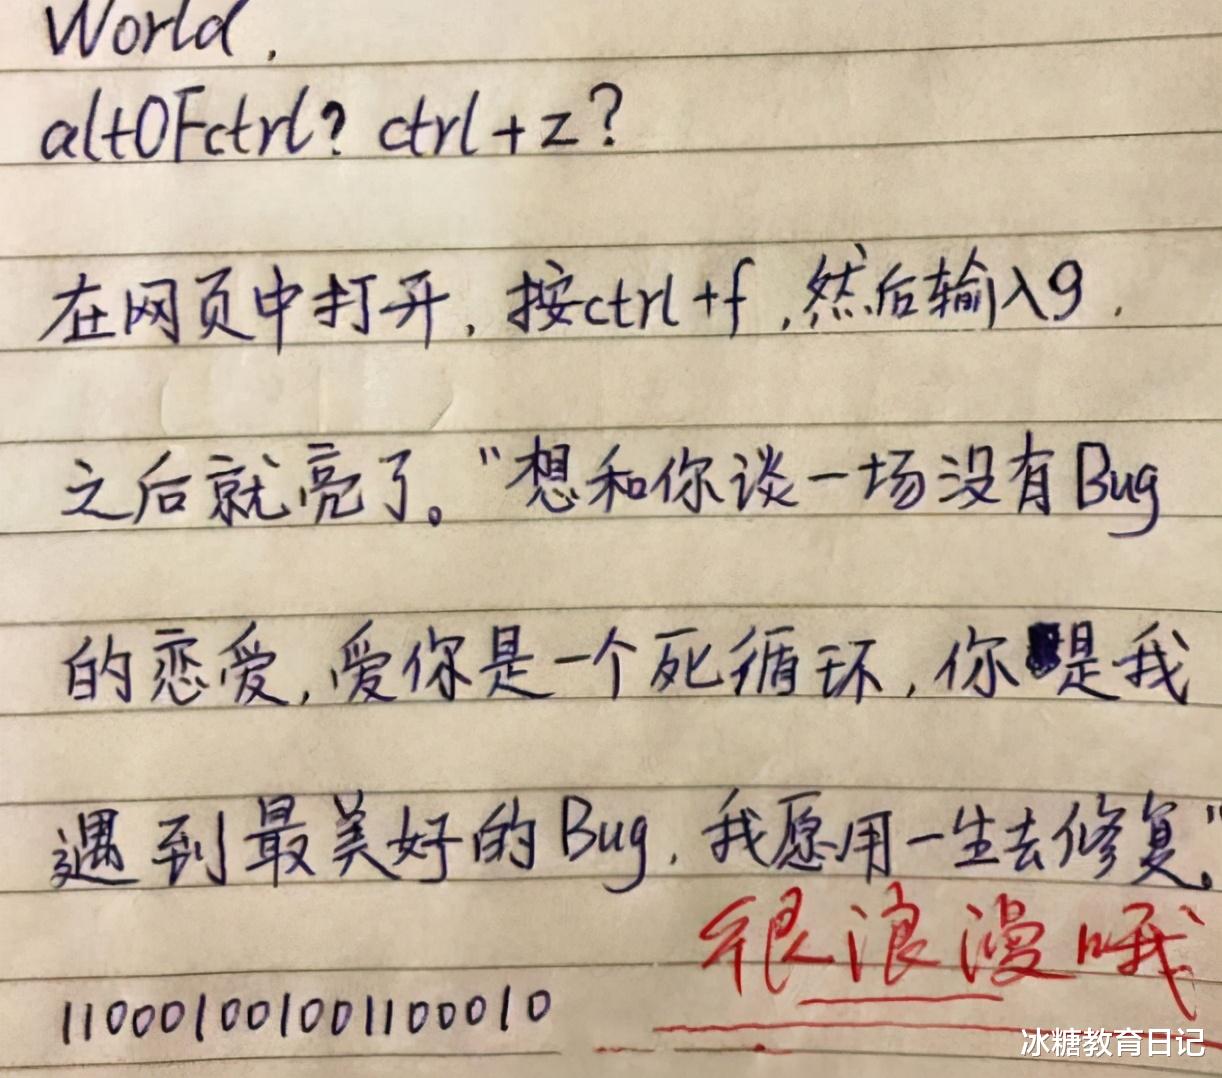 World,
altOFctrl? ctrl+z?
在网页中打开, 按ctrl+f, 然后输入9,
之后就亮了。"想和你谈一场没有Bug
的恋爱, 爱你是一个死循环, 你是我
遇到最美好的Bug, 我愿用一生去修复。"
很浪漫哦
110001001001100010
冰糖教育日记